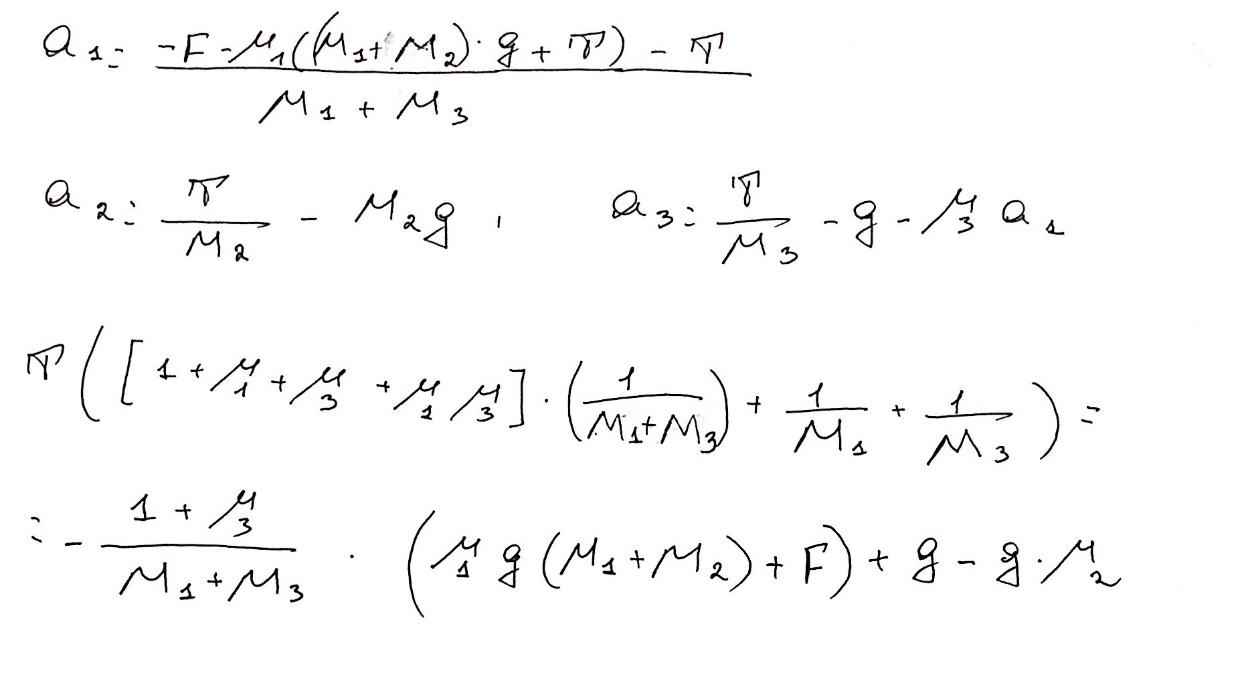 a₁ = (-F - μ₁((M₁ + M₂)·g + T) - T) / (M₁ + M₃)
a₂ = T/M₂ - M₂g , a₃ = T/M₃ - g - μ₃ a₁
T([1 + μ₁ + μ₃ + μ₁ μ₃]·(1/(M₁+M₃)) + 1/M₁ + 1/M₃) =
= - (1 + μ₃)/(M₁ + M₃) · (μ₁ g (M₁ + M₂) + F) + g - g·μ₂